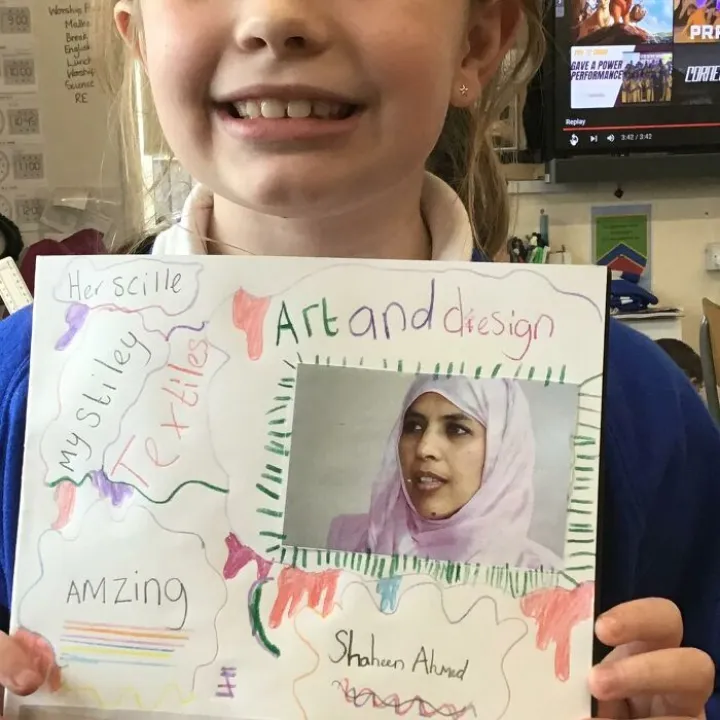 Worship
Maths
Break
English
Lunch
Worship
Science
RE
GAVE A POWER
PERFORMANCE
Replay
3:42 / 3:42
Her scille
My stiley
Textiles
Art and diesign
AMZing
Shaheen Ahmed